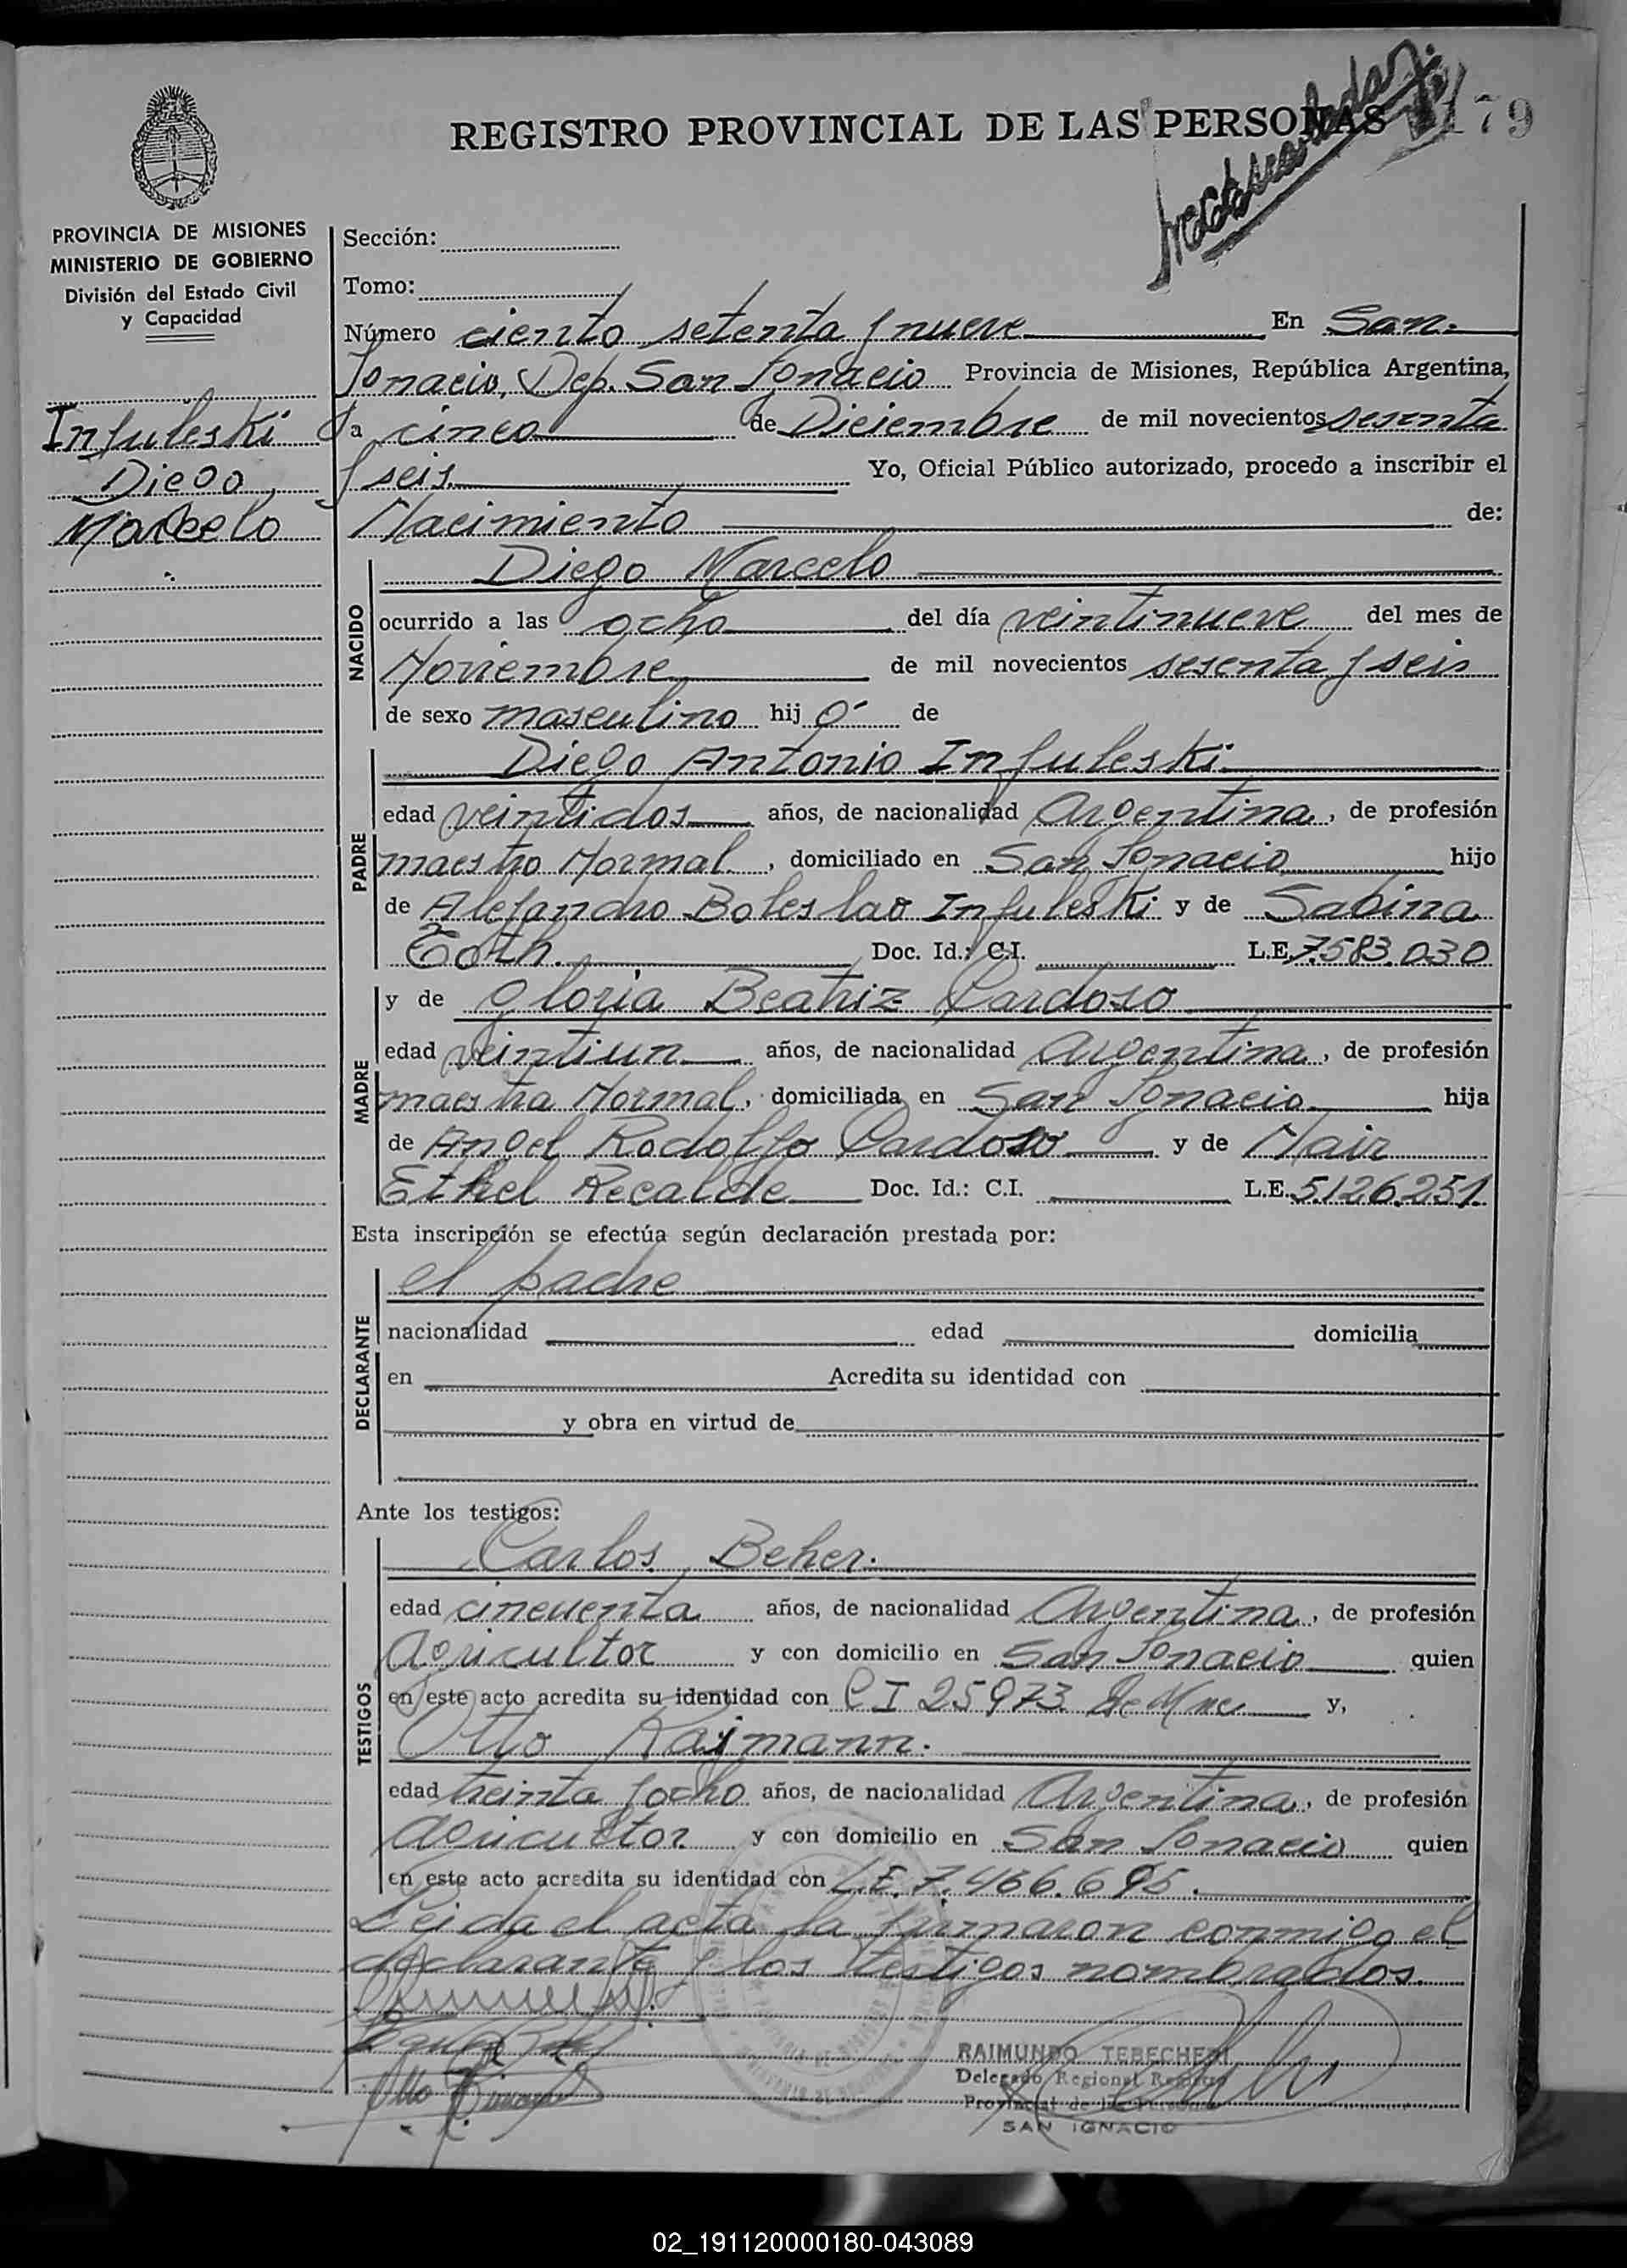 179
REGISTRO PROVINCIAL DE LAS PERSONAS
PROVINCIA DE MISIONES
MINISTERIO DE GOBIERNO
División del Estado Civil
y Capacidad
Infuleski
Diego
Marcelo
Sección:
Tomo:
Número ciento setenta y nueve En San
Ignacio, Dep. San Ignacio Provincia de Misiones, República Argentina,
a cinco de Diciembre de mil novecientos sesenta
y seis Yo, Oficial Público autorizado, procedo a inscribir el
Nacimiento de:
NACIDO
Diego Marcelo
ocurrido a las ocho del día veintinueve del mes de
Noviembre de mil novecientos sesenta y seis
de sexo masculino hij o de
PADRE
Diego Antonio Infuleski
edad veintidos años, de nacionalidad Argentina, de profesión
maestro Normal, domiciliado en San Ignacio hijo
de Alejandro Boleslao Infuleski y de Sabina
Toth. Doc. Id.: C.I. L.E. 7.583.030
MADRE
y de Gloria Beatriz Cardoso
edad veintiun años, de nacionalidad Argentina, de profesión
maestra Normal, domiciliada en San Ignacio hija
de Angel Rodolfo Cardoso y de Nair
Ethel Recalde Doc. Id.: C.I. L.E. 5.126.251
Esta inscripción se efectúa según declaración prestada por:
DECLARANTE
el padre
nacionalidad edad domicilia
en Acredita su identidad con
y obra en virtud de
Ante los testigos:
TESTIGOS
Carlos Beher.
edad cincuenta años, de nacionalidad Argentina, de profesión
Agricultor y con domicilio en San Ignacio quien
en este acto acredita su identidad con C I 25973 de Mnes y,
Otto Raimann.
edad treinta y ocho años, de nacionalidad Argentina, de profesión
agricultor y con domicilio en San Ignacio quien
en este acto acredita su identidad con L.E. 7.466.695.
Leida el acta la firmaron conmigo el
declarante y los testigos nombrados.
RAIMUNDO TEBECHERI
Delegado Regional Registro
Provincial de las Personas
SAN IGNACIO
02_191120000180-043089